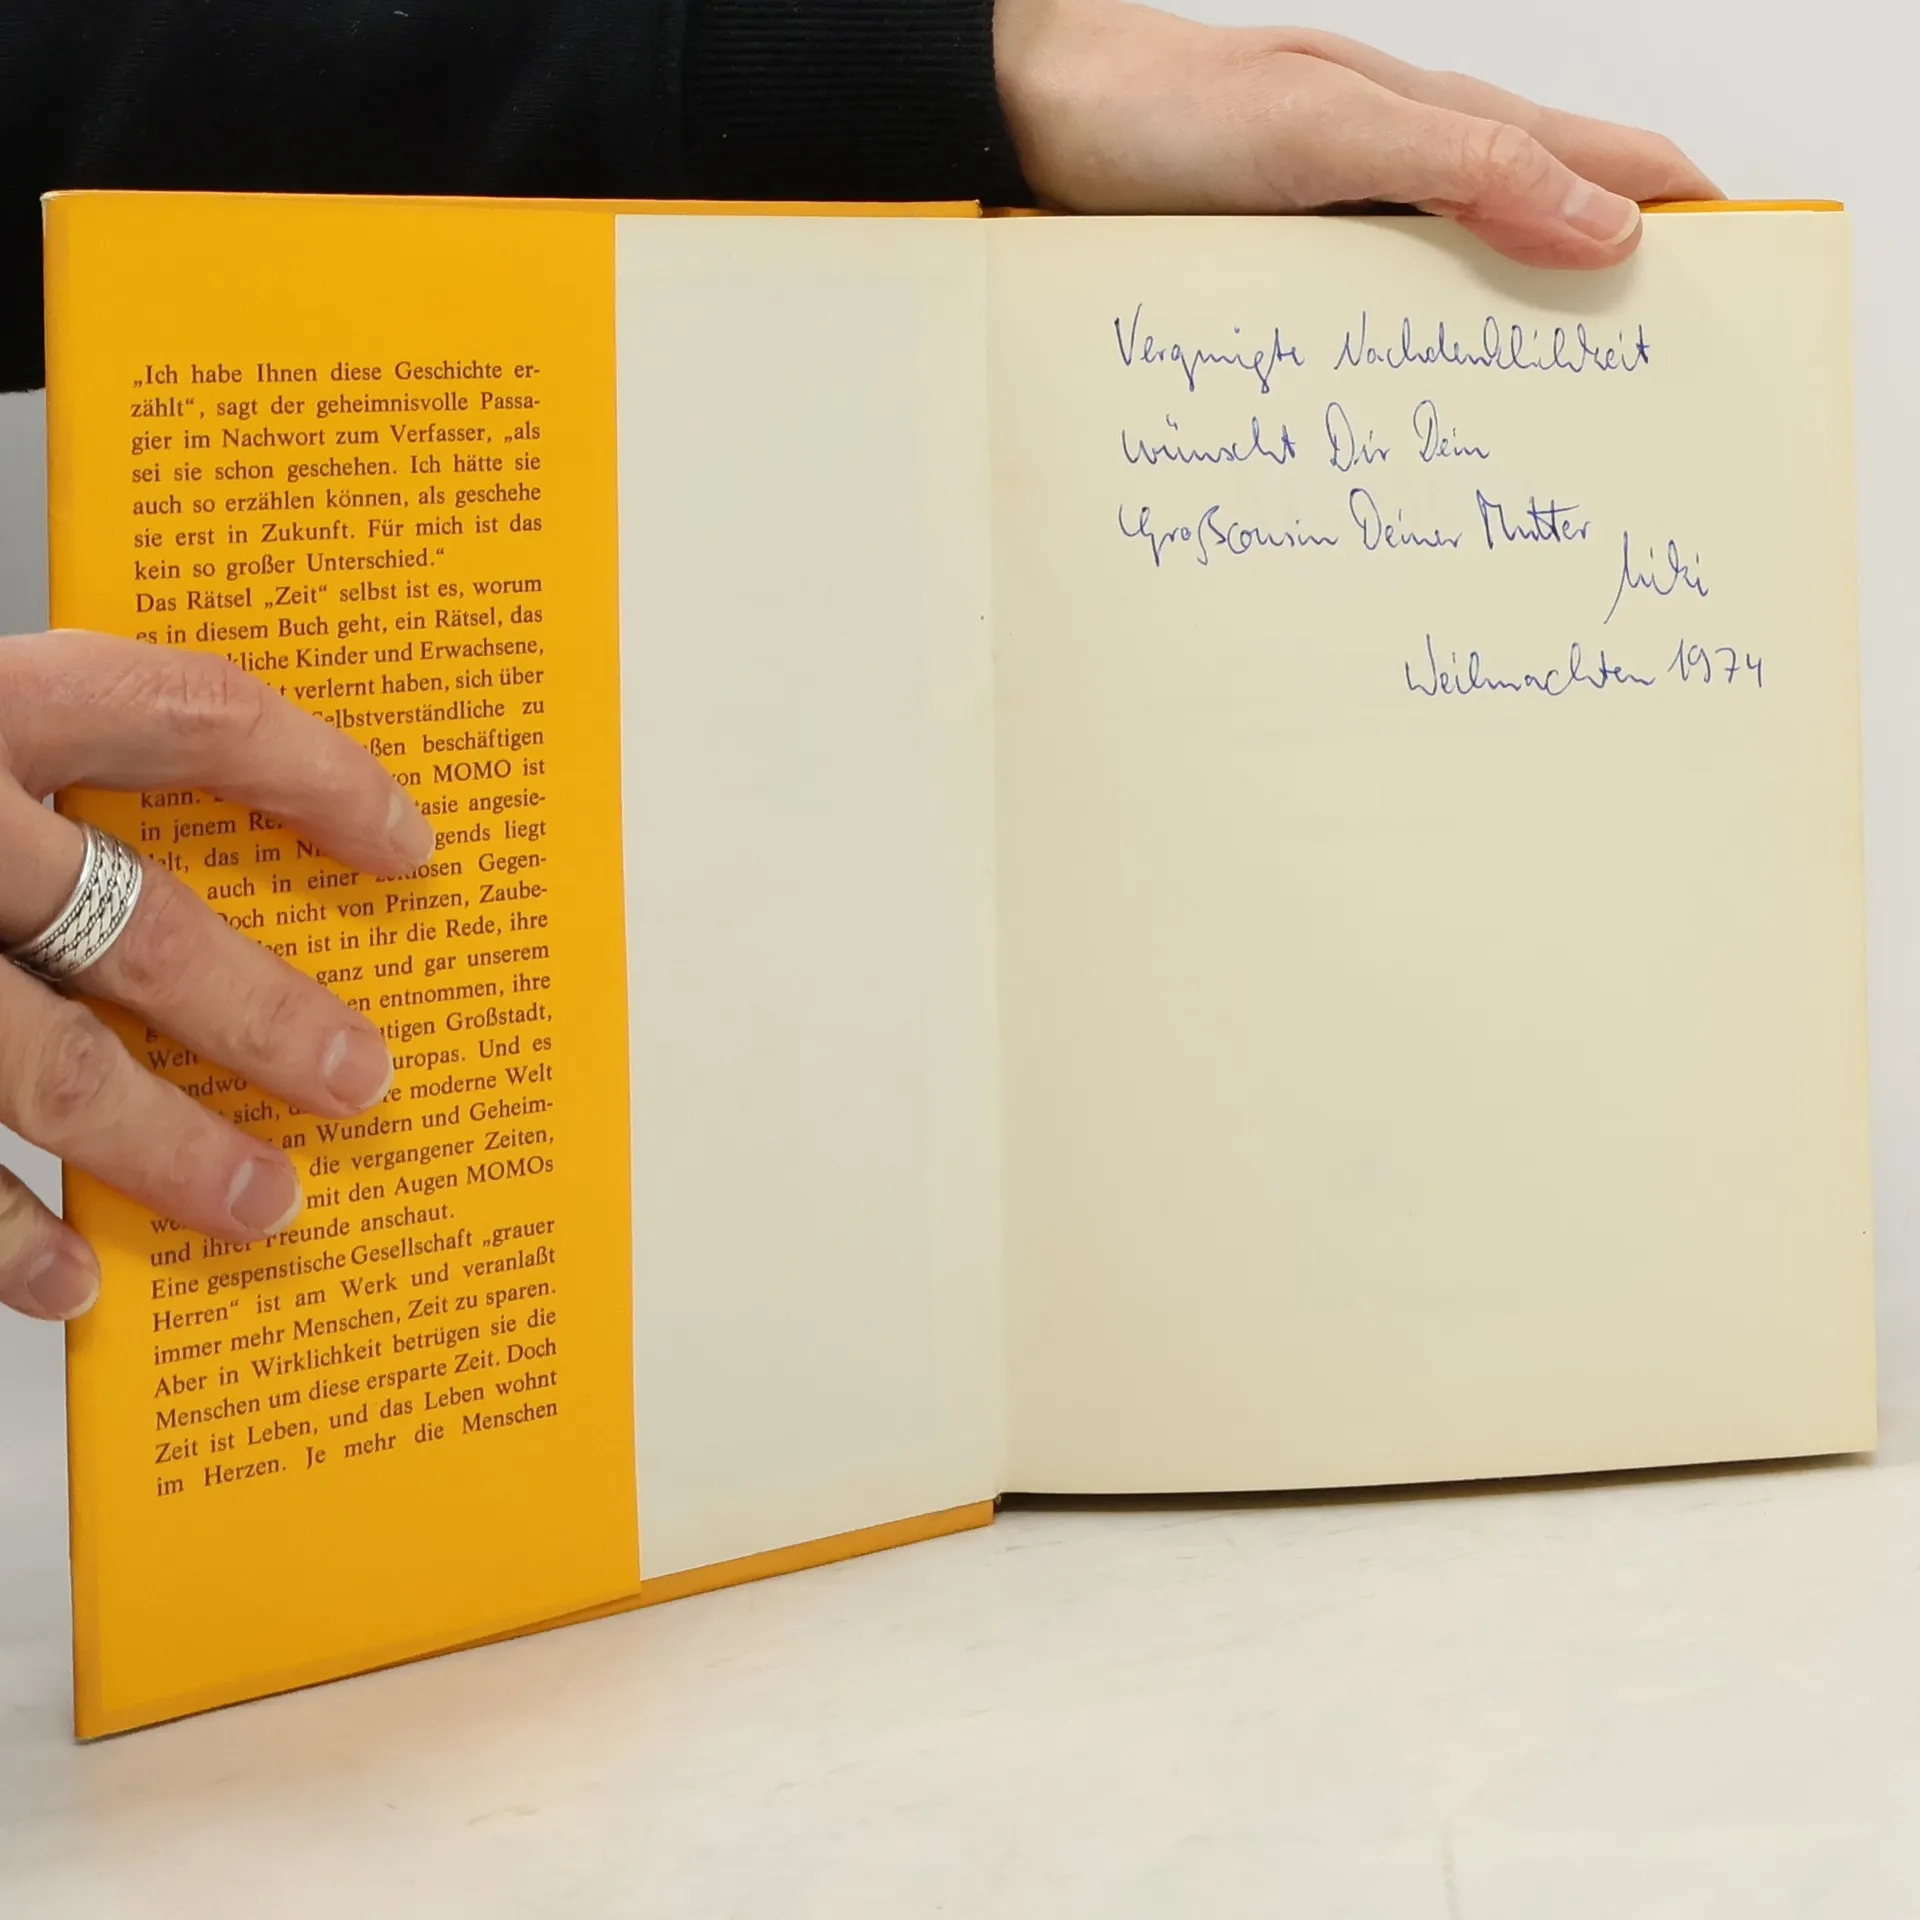 „Ich habe Ihnen diese Geschichte er-
zählt“, sagt der geheimnisvolle Passa-
gier im Nachwort zum Verfasser, „als
sei sie schon geschehen. Ich hätte sie
auch so erzählen können, als geschehe
sie erst in Zukunft. Für mich ist das
kein so großer Unterschied.“
Das Rätsel „Zeit“ selbst ist es, worum
es in diesem Buch geht, ein Rätsel, das
Kinder und Erwachsene,
verlernt haben, sich über
zu
beschäftigen
MOMO ist
kann. angesie-
in jenem liegt
das im Gegen-
auch in einer
nicht von Prinzen, Zaube-
ist in ihr die Rede, ihre
ganz und gar unserem
entnommen, ihre
Großstadt,
Und es
moderne Welt
sich,
an Wundern und Geheim-
die vergangener Zeiten,
mit den Augen MOMOs
und anschaut.
Eine gespenstische Gesellschaft „grauer
Herren“ ist am Werk und veranlaßt
immer mehr Menschen, Zeit zu sparen.
Aber in Wirklichkeit betrügen sie die
Menschen um diese ersparte Zeit. Doch
Zeit ist Leben, und das Leben wohnt
im Herzen. Je mehr die Menschen
Vergnügte Nachdenklichkeit
wünscht Dir Dein
Großcousin Deiner Mutter
Weihnachten 1974